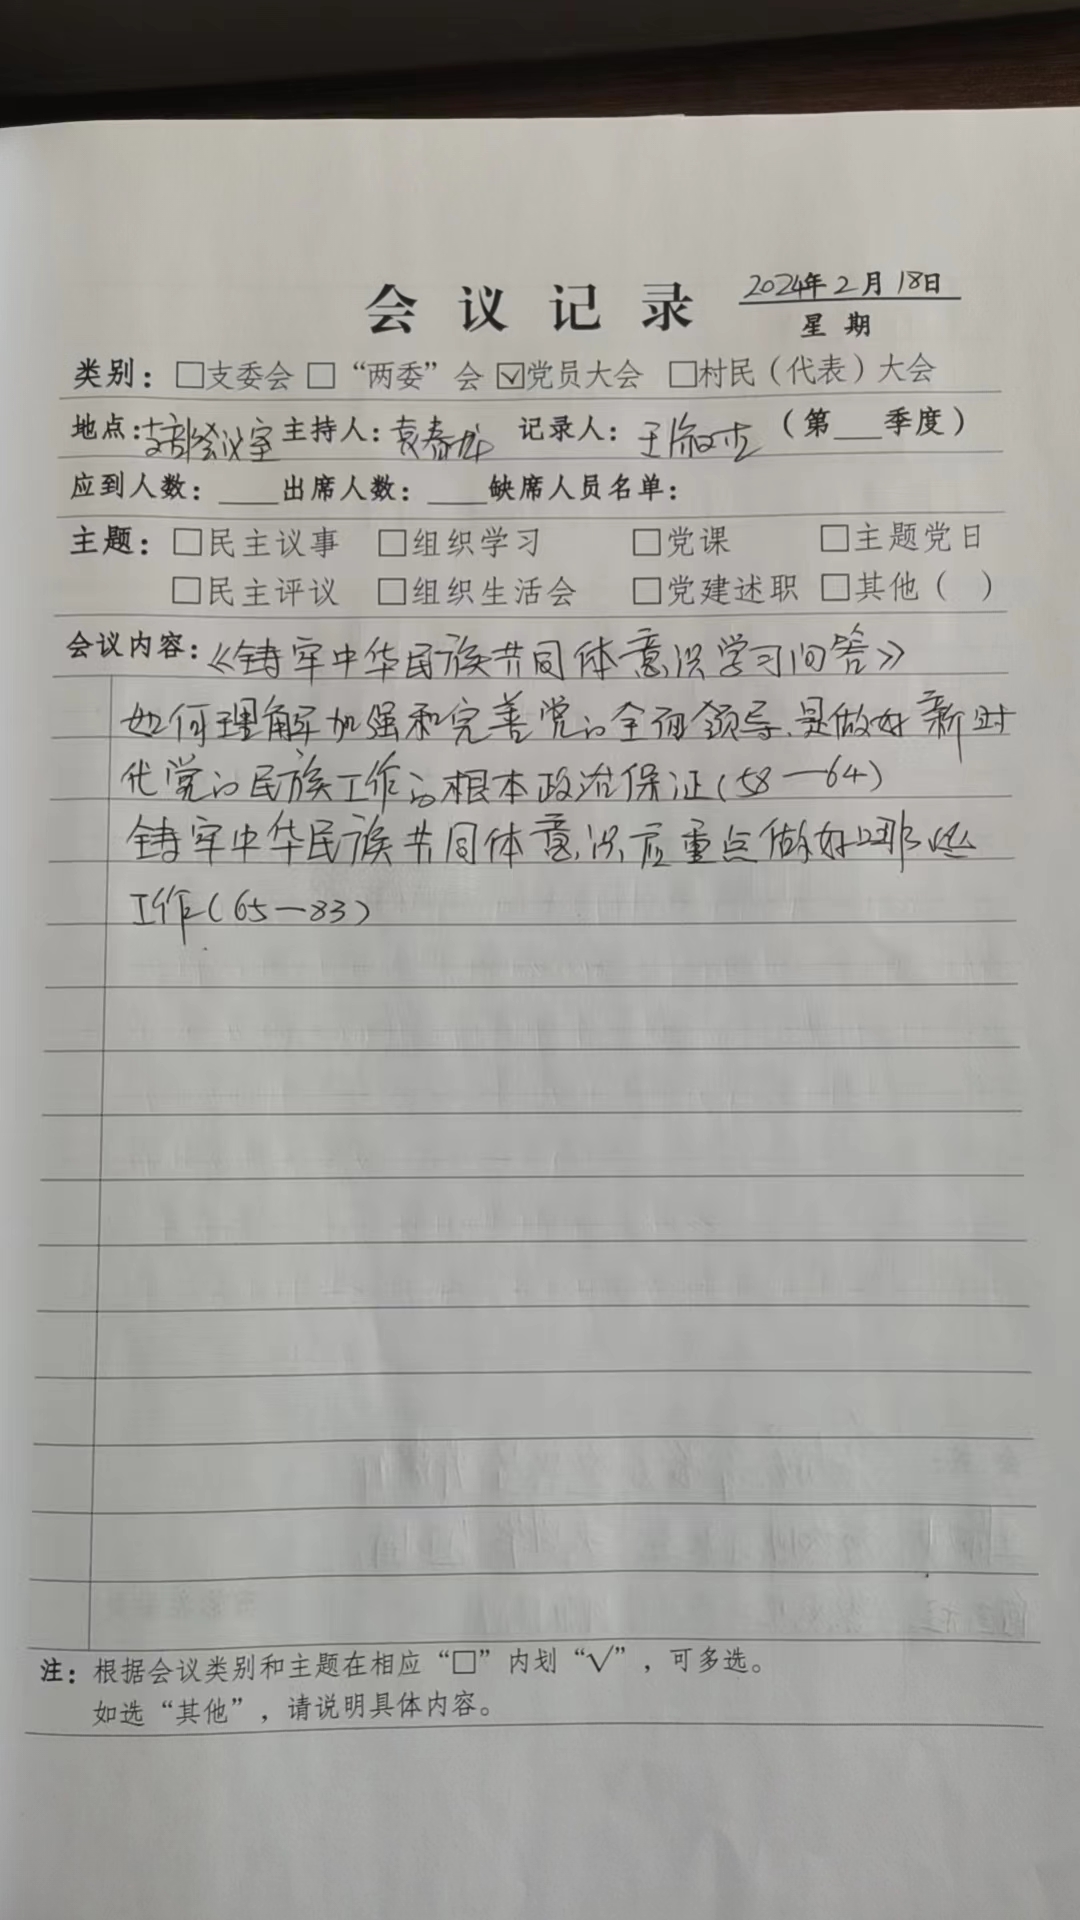 2024年2月18日
会议记录
星期
类别：□支委会 □“两委”会 ☑党员大会 □村民（代表）大会
地点：支部会议室 主持人：袁春龙 记录人：王 （第___季度）
应到人数：____出席人数：____缺席人员名单：
主题：□民主议事 □组织学习 □党课 □主题党日
□民主评议 □组织生活会 □党建述职 □其他（ ）
会议内容：《铸牢中华民族共同体意识学习问答》
如何理解加强和完善党的全面领导、是做好新时
代党的民族工作的根本政治保证(58—64)
铸牢中华民族共同体意识应重点做好哪些
工作(65—83)
注：根据会议类别和主题在相应“□”内划“√”，可多选。
如选“其他”，请说明具体内容。